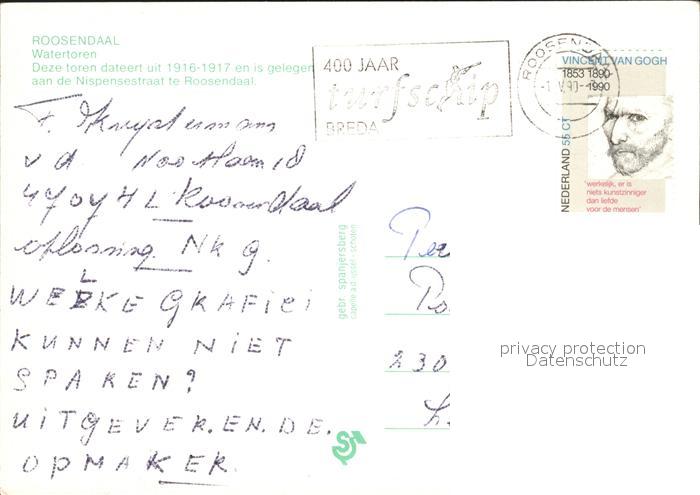 ROOSENDAAL
Watertoren
Deze toren dateert uit 1916-1917 en is gelegen
aan de Nispensestraat te Roosendaal.
400 JAAR
turfschip
BREDA
ROOSENDA
-1.V.90-
VINCENT VAN GOGH
1853 1890-
1990
NEDERLAND 55 CT
'werkelijk, er is
niets kunstzinniger
dan liefde
voor de mensen'
v d
4704 HL Roosendaal
oplossing Nk 9.
WELKE GRAFICI
KUNNEN NIET
SPAREN?
UITGEVER.EN.DE.
OPMAKER.
gebr. spanjersberg
capelle a.d. ijssel - schoten
Po
230
L.
privacy protection
Datenschutz